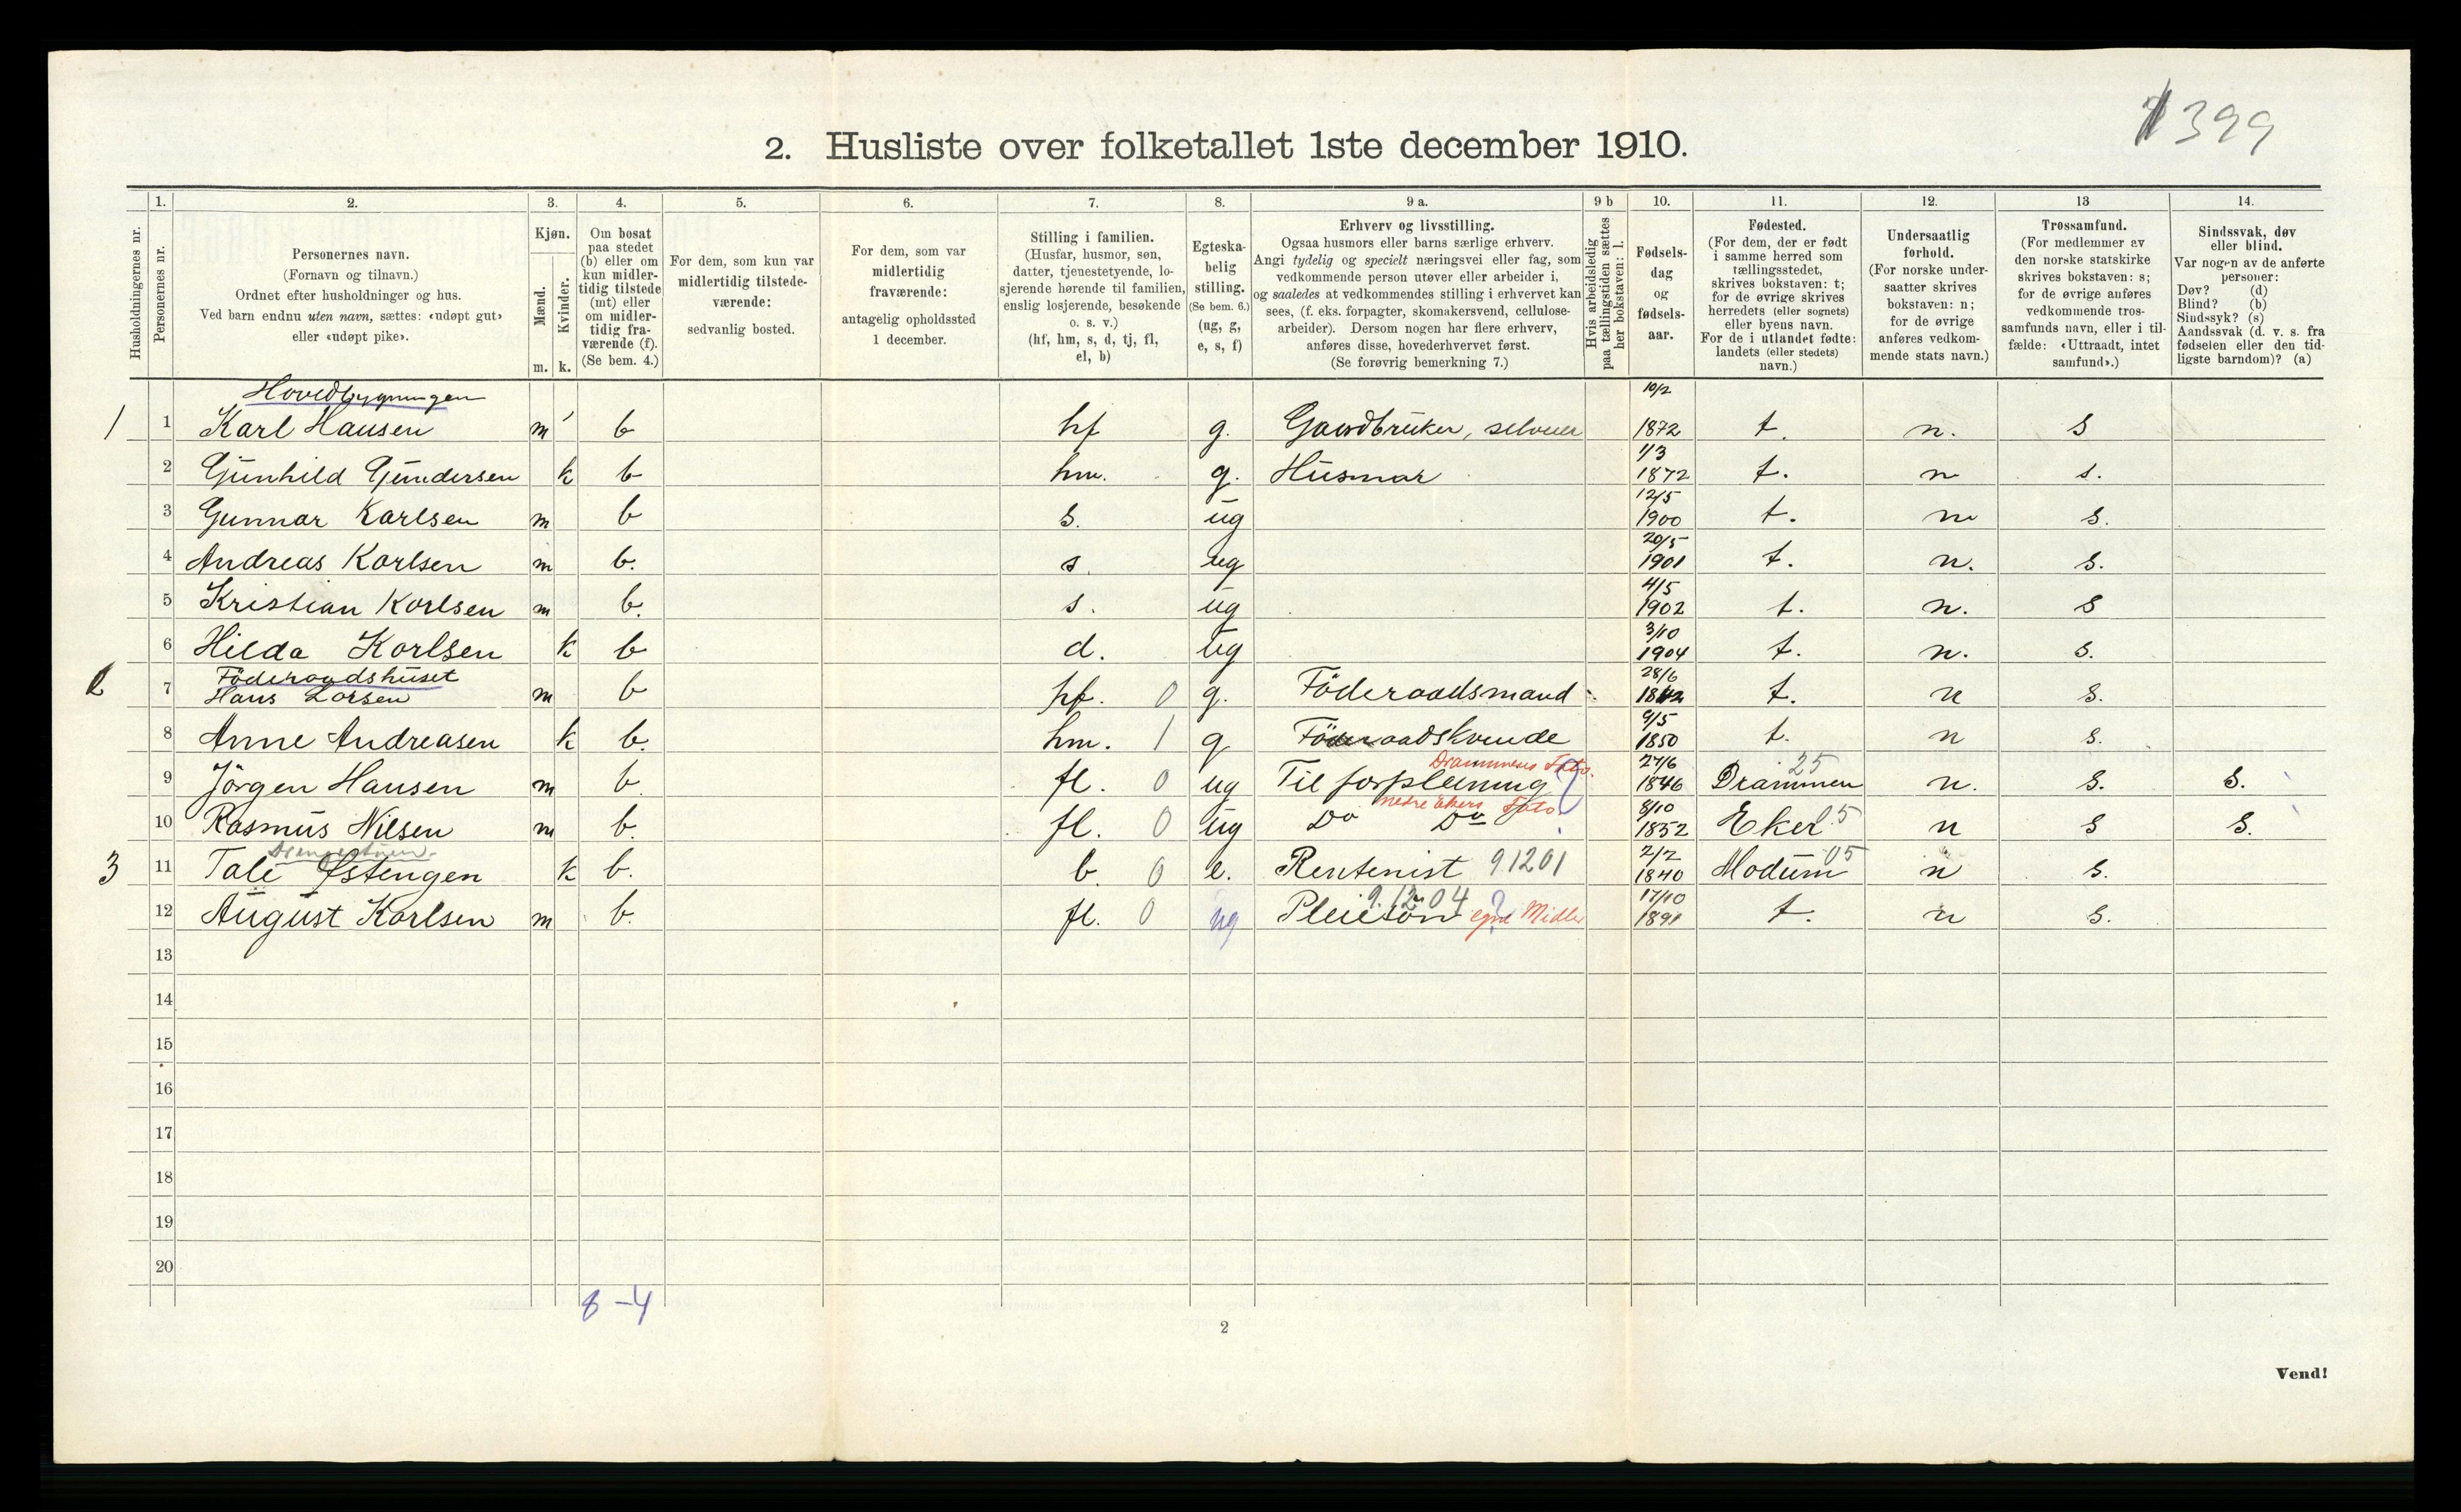 1399
2. Husliste over folketallet 1ste december 1910.
1. 2. 3. 4. 5. 6. 7. 8. 9 a. 9 b 10. 11. 12. 13 14.
Husholdningernes nr.
Personernes nr.
Personernes navn.
(Fornavn og tilnavn.)
Ordnet efter husholdninger og hus.
Ved barn endnu uten navn, sættes: «udøpt gut»
eller «udøpt pike».
Kjøn.
Mænd.
Kvinder.
m. k.
Om bosat
paa stedet
(b) eller om
kun midler-
tidig tilstede
(mt) eller
om midler-
tidig fra-
værende (f).
(Se bem. 4.)
For dem, som kun var
midlertidig tilstede-
værende:
sedvanlig bosted.
For dem, som var
midlertidig
fraværende:
antagelig opholdssted
1 december.
Stilling i familien.
(Husfar, husmor, søn,
datter, tjenestetyende, lo-
sjerende hørende til familien,
enslig losjerende, besøkende
o. s. v.)
(hf, hm, s, d, tj, fl,
el, b)
Egteska-
belig
stilling.
(Se bem. 6.)
(ug, g,
e, s, f)
Erhverv og livsstilling.
Ogsaa husmors eller barns særlige erhverv.
Angi tydelig og specielt næringsvei eller fag, som
vedkommende person utøver eller arbeider i,
og saaledes at vedkommendes stilling i erhvervet kan
sees, (f. eks. forpagter, skomakersvend, cellulose-
arbeider). Dersom nogen har flere erhverv,
anføres disse, hovederhvervet først.
(Se forøvrig bemerkning 7.)
Hvis arbeidsledig
paa tællingstiden sættes
her bokstaven: l.
Fødsels-
dag
og
fødsels-
aar.
Fødested.
(For dem, der er født
i samme herred som
tællingsstedet,
skrives bokstaven: t;
for de øvrige skrives
herredets (eller sognets)
eller byens navn.
For de i utlandet fødte:
landets (eller stedets)
navn.)
Undersaatlig
forhold.
(For norske under-
saatter skrives
bokstaven: n;
for de øvrige
anføres vedkom-
mende stats navn.)
Trossamfund.
(For medlemmer av
den norske statskirke
skrives bokstaven: s;
for de øvrige anføres
vedkommende tros-
samfunds navn, eller i til-
fælde: «Uttraadt, intet
samfund».)
Sindssvak, døv
eller blind.
Var nogen av de anførte
personer:
Døv? (d)
Blind? (b)
Sindssyk? (s)
Aandssvak (d. v. s. fra
fødselen eller den tid-
ligste barndom)? (a)
Hovedbygningen
1 1 Karl Hansen m b hf g. Gaardbruker, selveier 10/2 1872 t. n. s
2 Gunhild Gundersen k b hm. g. Husmor 1/3 1872 t. n s.
3 Gunnar Karlsen m b s. ug 12/5 1900 t. n s.
4 Andreas Karlsen m b. s. ug 20/5 1901 t. n. s.
5 Kristian Karlsen m b. s. ug 4/5 1902 t. n. s
6 Hilda Karlsen k b d. ug 3/10 1904 t. n. s.
Föderaadshuset
2 7 Hans Larsen m b hf. 0 g. Föderaadsmand 28/6 1842 t. n s.
8 Anne Andreasen k b. hm. 1 g Föderaadskvinde 9/5 1850 t. n s.
Drammens Fato. 25
9 Jörgen Hansen m b. fl. 0 ug Til forpleining ? 27/6 1846 Drammen n. s. S.
nedre Ekers Fato
10 Rasmus Nilsen m b. fl. 0 ug Do Do 8/10 1852 Eker 5 n s S.
3 11 Tale Østengen k b. b. 0 e. Rentenist 91201 2/2 1840 Modum 05 n s.
9.12.04
12 August Karlsen m b. fl. 0 ug Pleiesön egne Midler ? 17/10 1891 t. n s.
13
14
15
16
17
18
19
20
8-4
2
Vend!